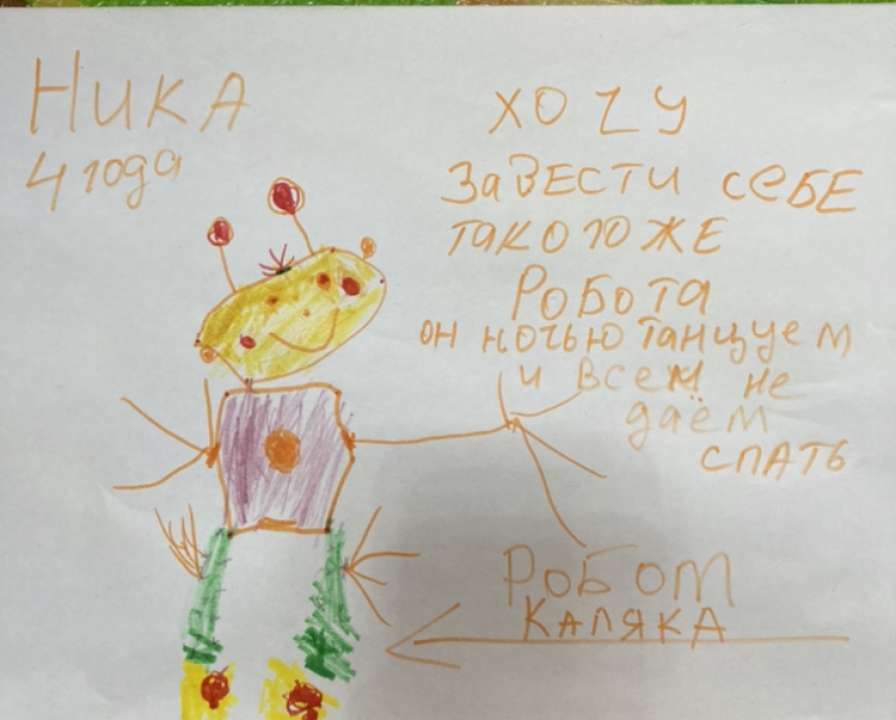 Ника
4 года
ХОЧУ
ЗаВЕСТИ СеБЕ
ТаКОГОЖЕ
РОБОТа
он ночью танцует
и всем не
даём
СПАТЬ
Робот
КаляКА